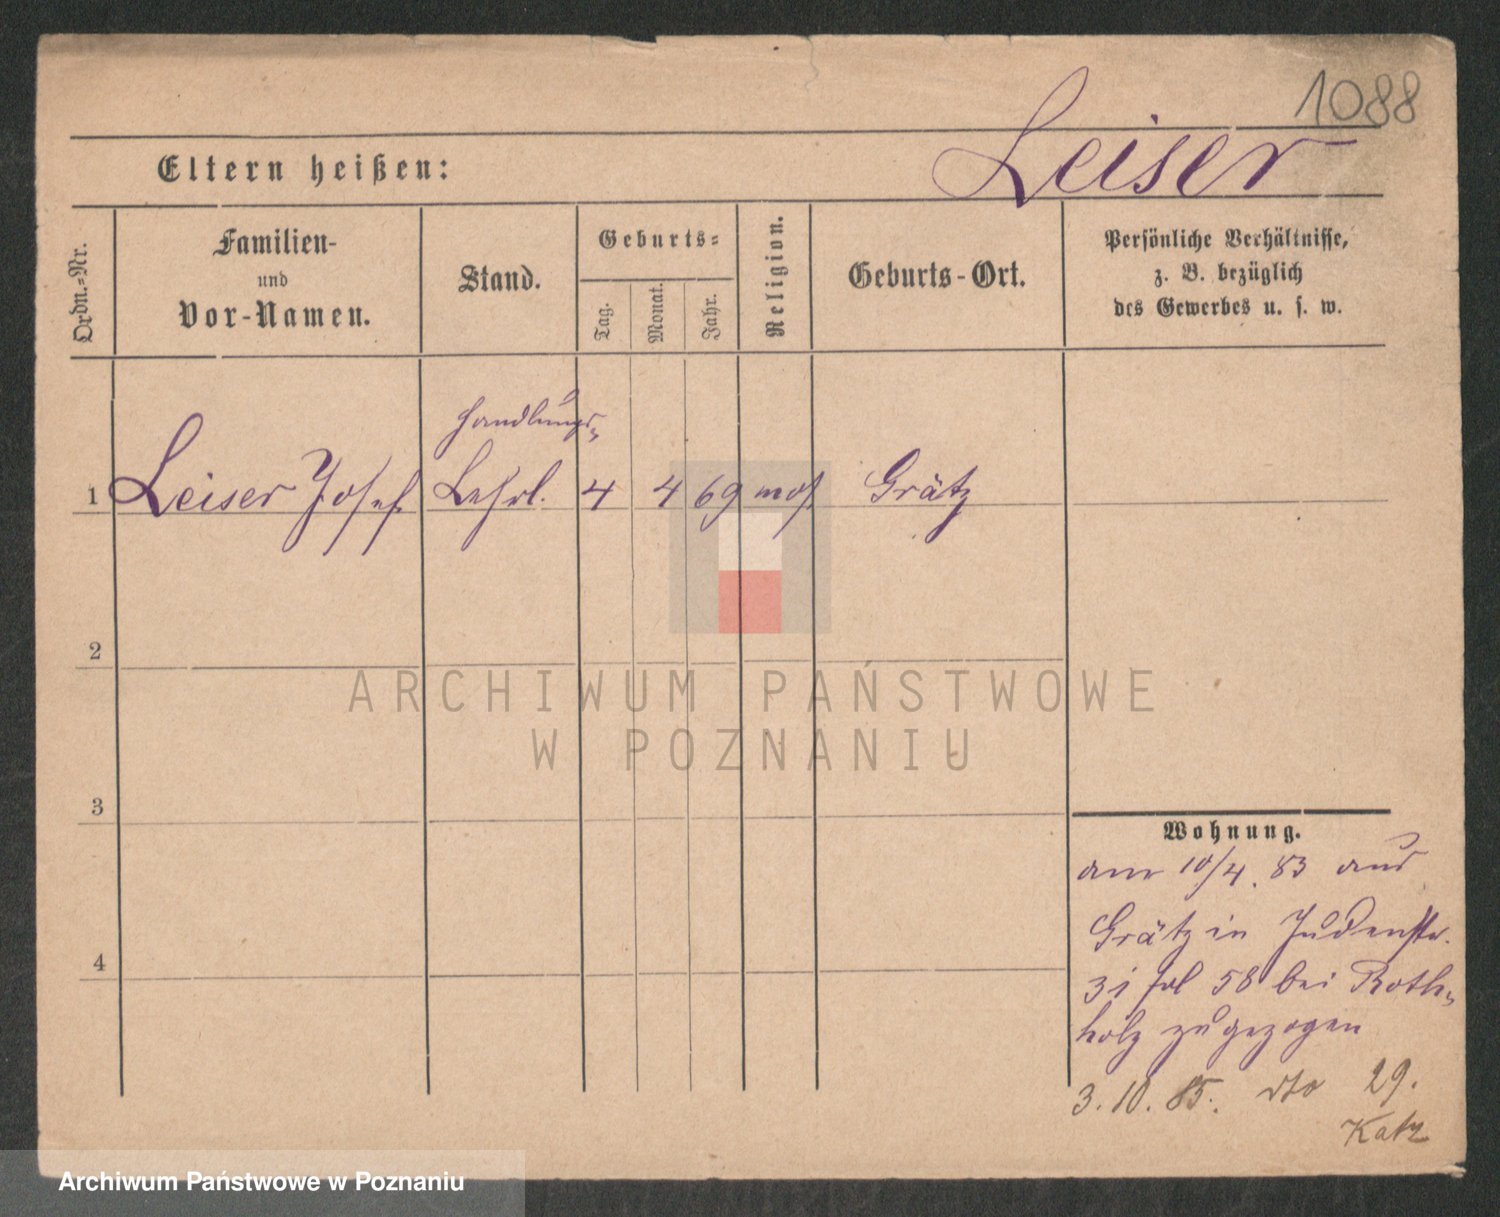 1088
Leiser
Eltern heißen:
Ordn.-Nr.
Familien-
und
Vor-Namen.
Stand.
Geburts-
Tag.
Monat.
Jahr.
Religion.
Geburts-Ort.
Persönliche Verhältnisse,
z. B. bezüglich
des Gewerbes u. s. w.
Handlungs-
1 Leiser Josef Lehrl. 4 4 69 mos. Grätz
2
3
4
ARCHIWUM PAŃSTWOWE
W POZNANIU
Wohnung.
am 10/4. 83 aus
Grätz in Judenstr.
31 58 bei Roth-
holz zugezogen
3.10.85. dto 29.
Katz
Archiwum Państwowe w Poznaniu